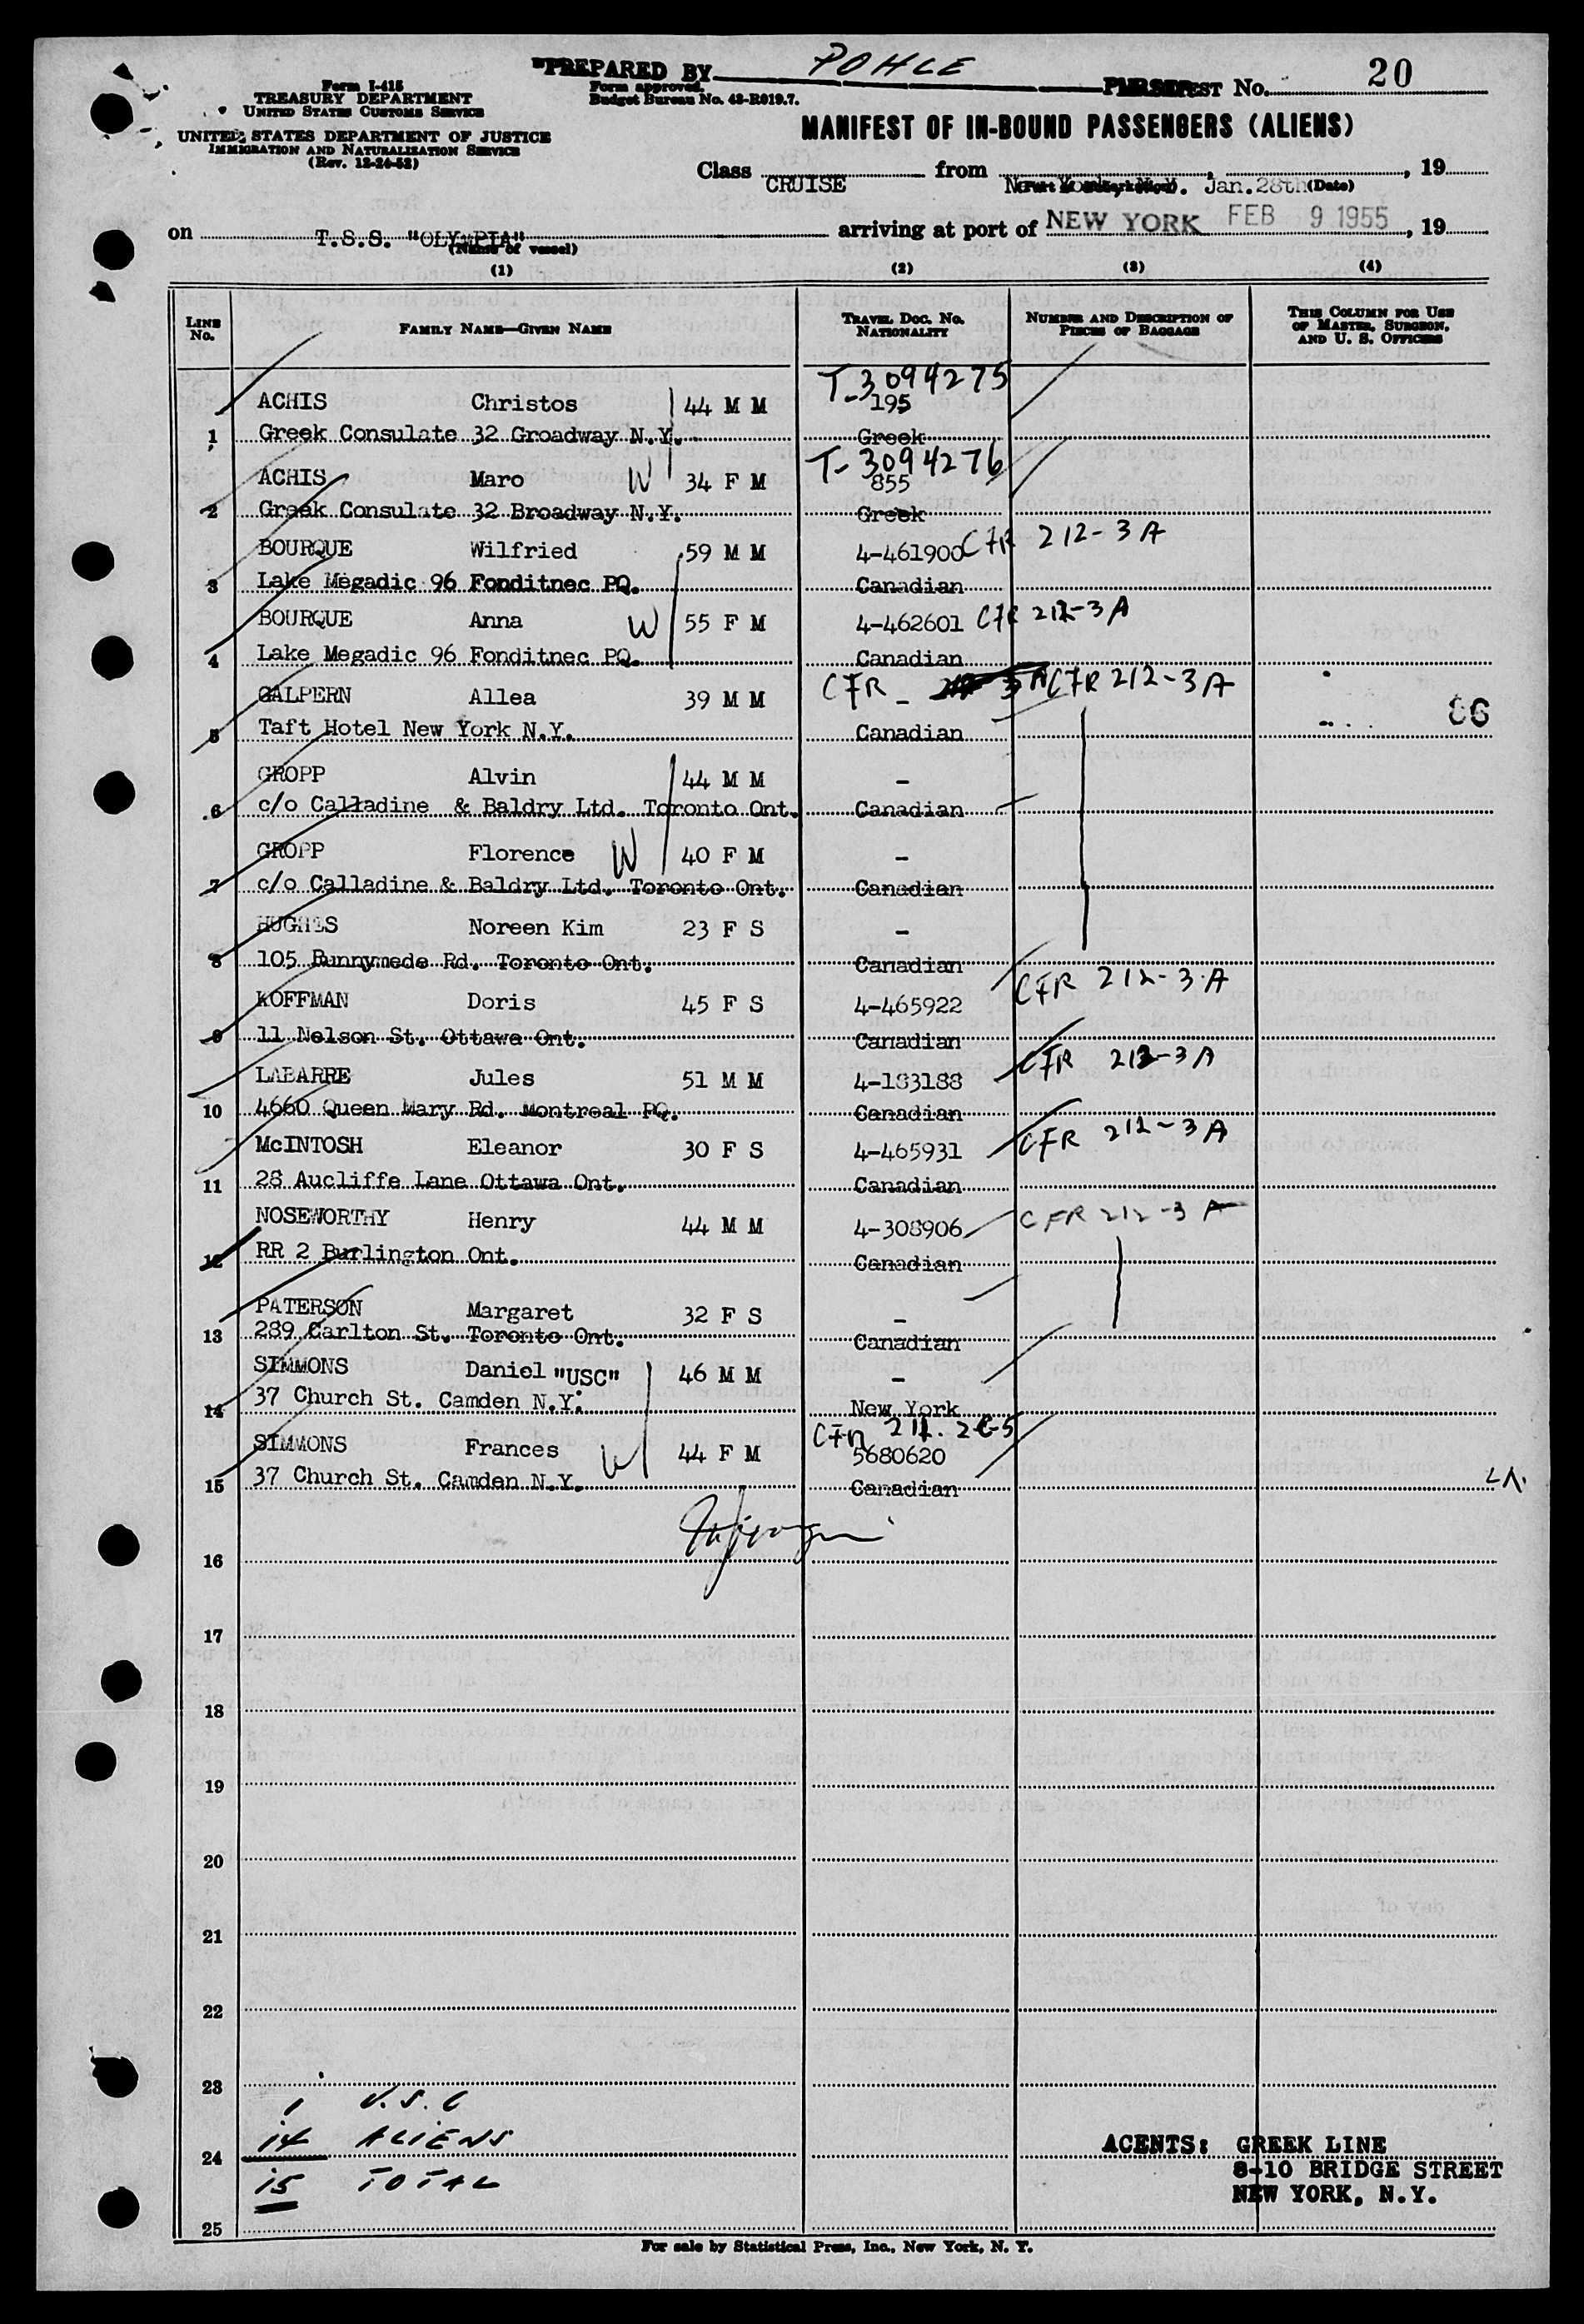 "PREPARED BY POHLE PURSER
MANIFEST No. 20
Form I-415
TREASURY DEPARTMENT
UNITED STATES CUSTOMS SERVICE
UNITED STATES DEPARTMENT OF JUSTICE
IMMIGRATION AND NATURALIZATION SERVICE
(Rev. 12-24-52)
Form approved.
Budget Bureau No. 43-R019.7.
MANIFEST OF IN-BOUND PASSENGERS (ALIENS)
Class CRUISE from New York, N.Y. Jan.28th (Date), 19
on T.S.S. "OLYMPIA" arriving at port of NEW YORK FEB 9 1955, 19
(Name of vessel)
(1) (2) (3) (4)
LINE No. FAMILY NAME—GIVEN NAME TRAVEL DOC. No. NATIONALITY NUMBER AND DESCRIPTION OF PIECES OF BAGGAGE THIS COLUMN FOR USE OF MASTER, SURGEON, AND U. S. OFFICERS
T-3094275
ACHIS Christos 44 M M 195
1 Greek Consulate 32 Groadway N.Y. Greek
T-3094276
ACHIS Maro W 34 F M 855
2 Greek Consulate 32 Broadway N.Y. Greek
BOURQUE Wilfried 59 M M 4-461900 CFR 212-3A
3 Lake Megadic 96 Fonditnec PQ. Canadian
BOURQUE Anna W 55 F M 4-462601 CFR 212-3A
4 Lake Megadic 96 Fonditnec PQ. Canadian
GALPERN Allea 39 M M CFR - CFR 212-3A
5 Taft Hotel New York N.Y. Canadian 86
GROPP Alvin 44 M M -
6 c/o Calladine & Baldry Ltd. Toronto Ont. Canadian
GROPP Florence W 40 F M -
7 c/o Calladine & Baldry Ltd. Toronto Ont. Canadian
HUGHES Noreen Kim 23 F S -
8 105 Runnymede Rd. Toronto Ont. Canadian
KOFFMAN Doris 45 F S 4-465922 CFR 212-3-A
9 11 Nelson St. Ottawa Ont. Canadian
LABARRE Jules 51 M M 4-183188 CFR 212-3A
10 4660 Queen Mary Rd. Montreal PQ. Canadian
McINTOSH Eleanor 30 F S 4-465931 CFR 212-3A
11 28 Aucliffe Lane Ottawa Ont. Canadian
NOSEWORTHY Henry 44 M M 4-308906 CFR 212-3 A
12 RR 2 Burlington Ont. Canadian
PATERSON Margaret 32 F S -
13 289 Carlton St. Toronto Ont. Canadian
SIMMONS Daniel "USC" 46 M M -
14 37 Church St. Camden N.Y. New York
CFR 211.2C-5
SIMMONS Frances W 44 F M 5680620
15 37 Church St. Camden N.Y. Canadian
16
17
18
19
20
21
22
23
1 U.S.C
24 14 ALIENS
15 TOTAL
25
AGENTS: GREEK LINE
8-10 BRIDGE STREET
NEW YORK, N.Y.
For sale by Statistical Press, Inc., New York, N. Y.